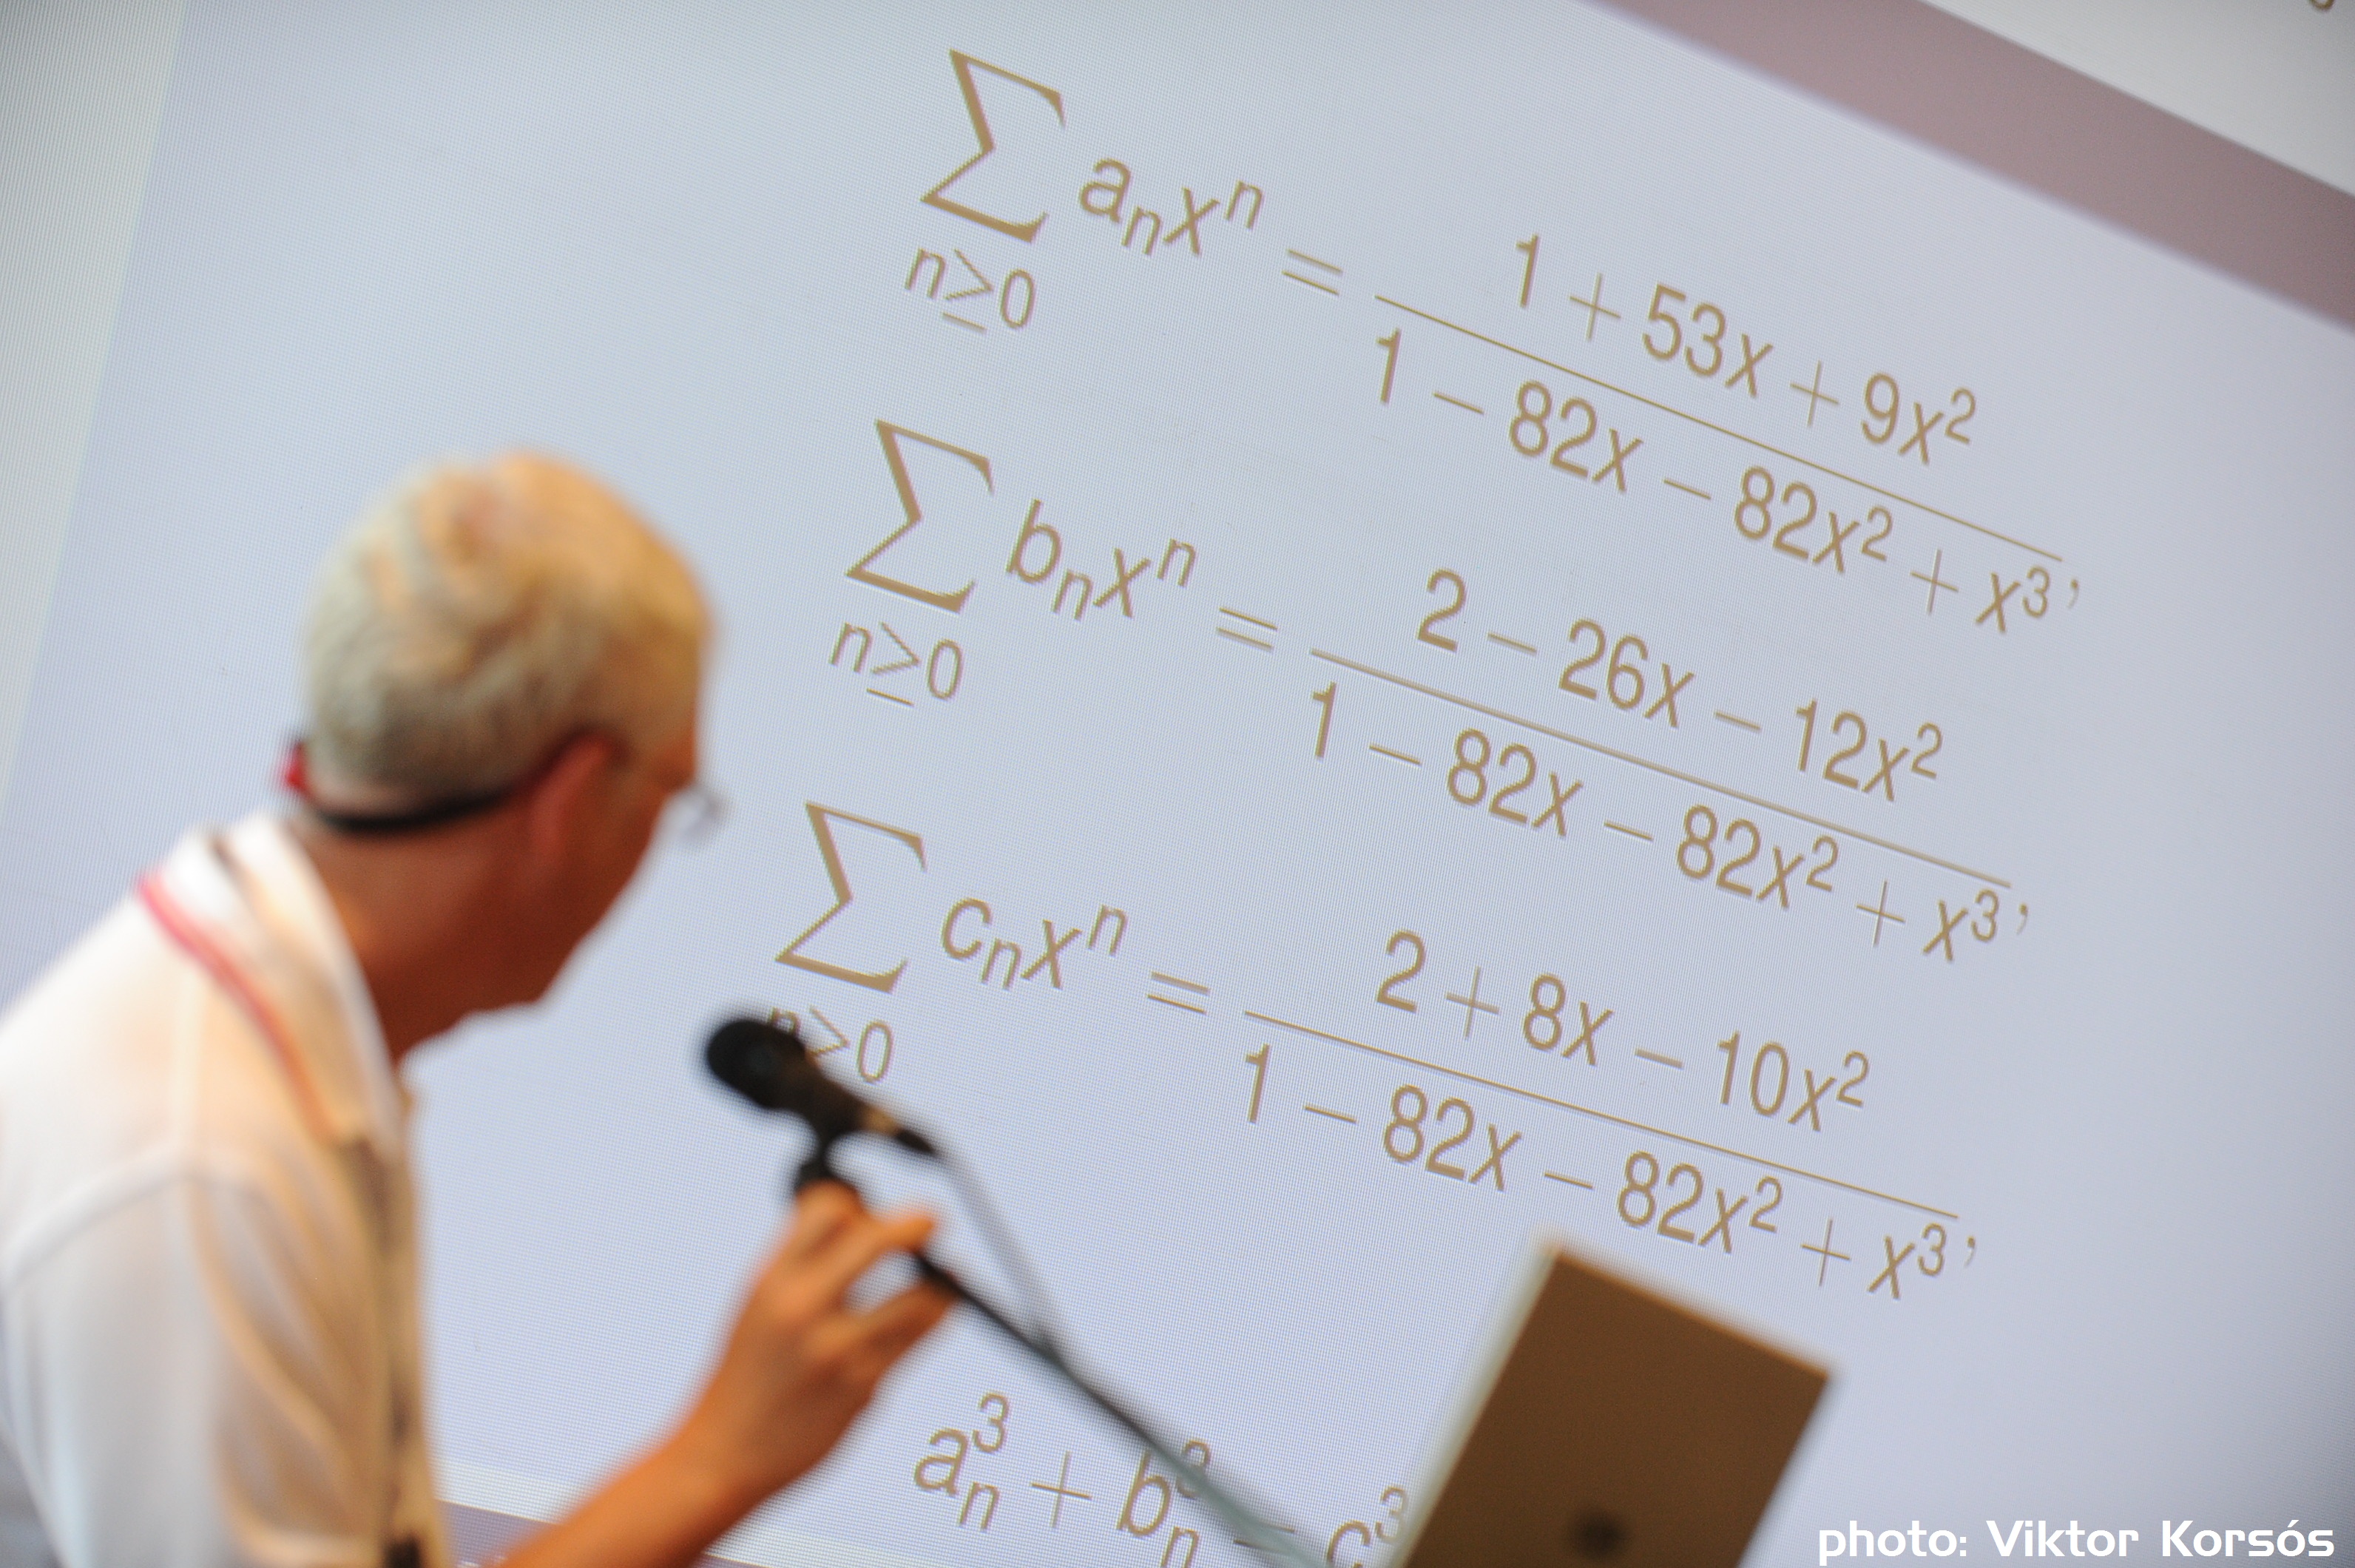 ∑_{n≥0} a_n x^n = (1 + 53x + 9x²) / (1 − 82x − 82x² + x³),
∑_{n≥0} b_n x^n = (2 − 26x − 12x²) / (1 − 82x − 82x² + x³),
∑_{n≥0} c_n x^n = (2 + 8x − 10x²) / (1 − 82x − 82x² + x³),
a_n³ + b_n³ = c_n³
photo: Viktor Korsós